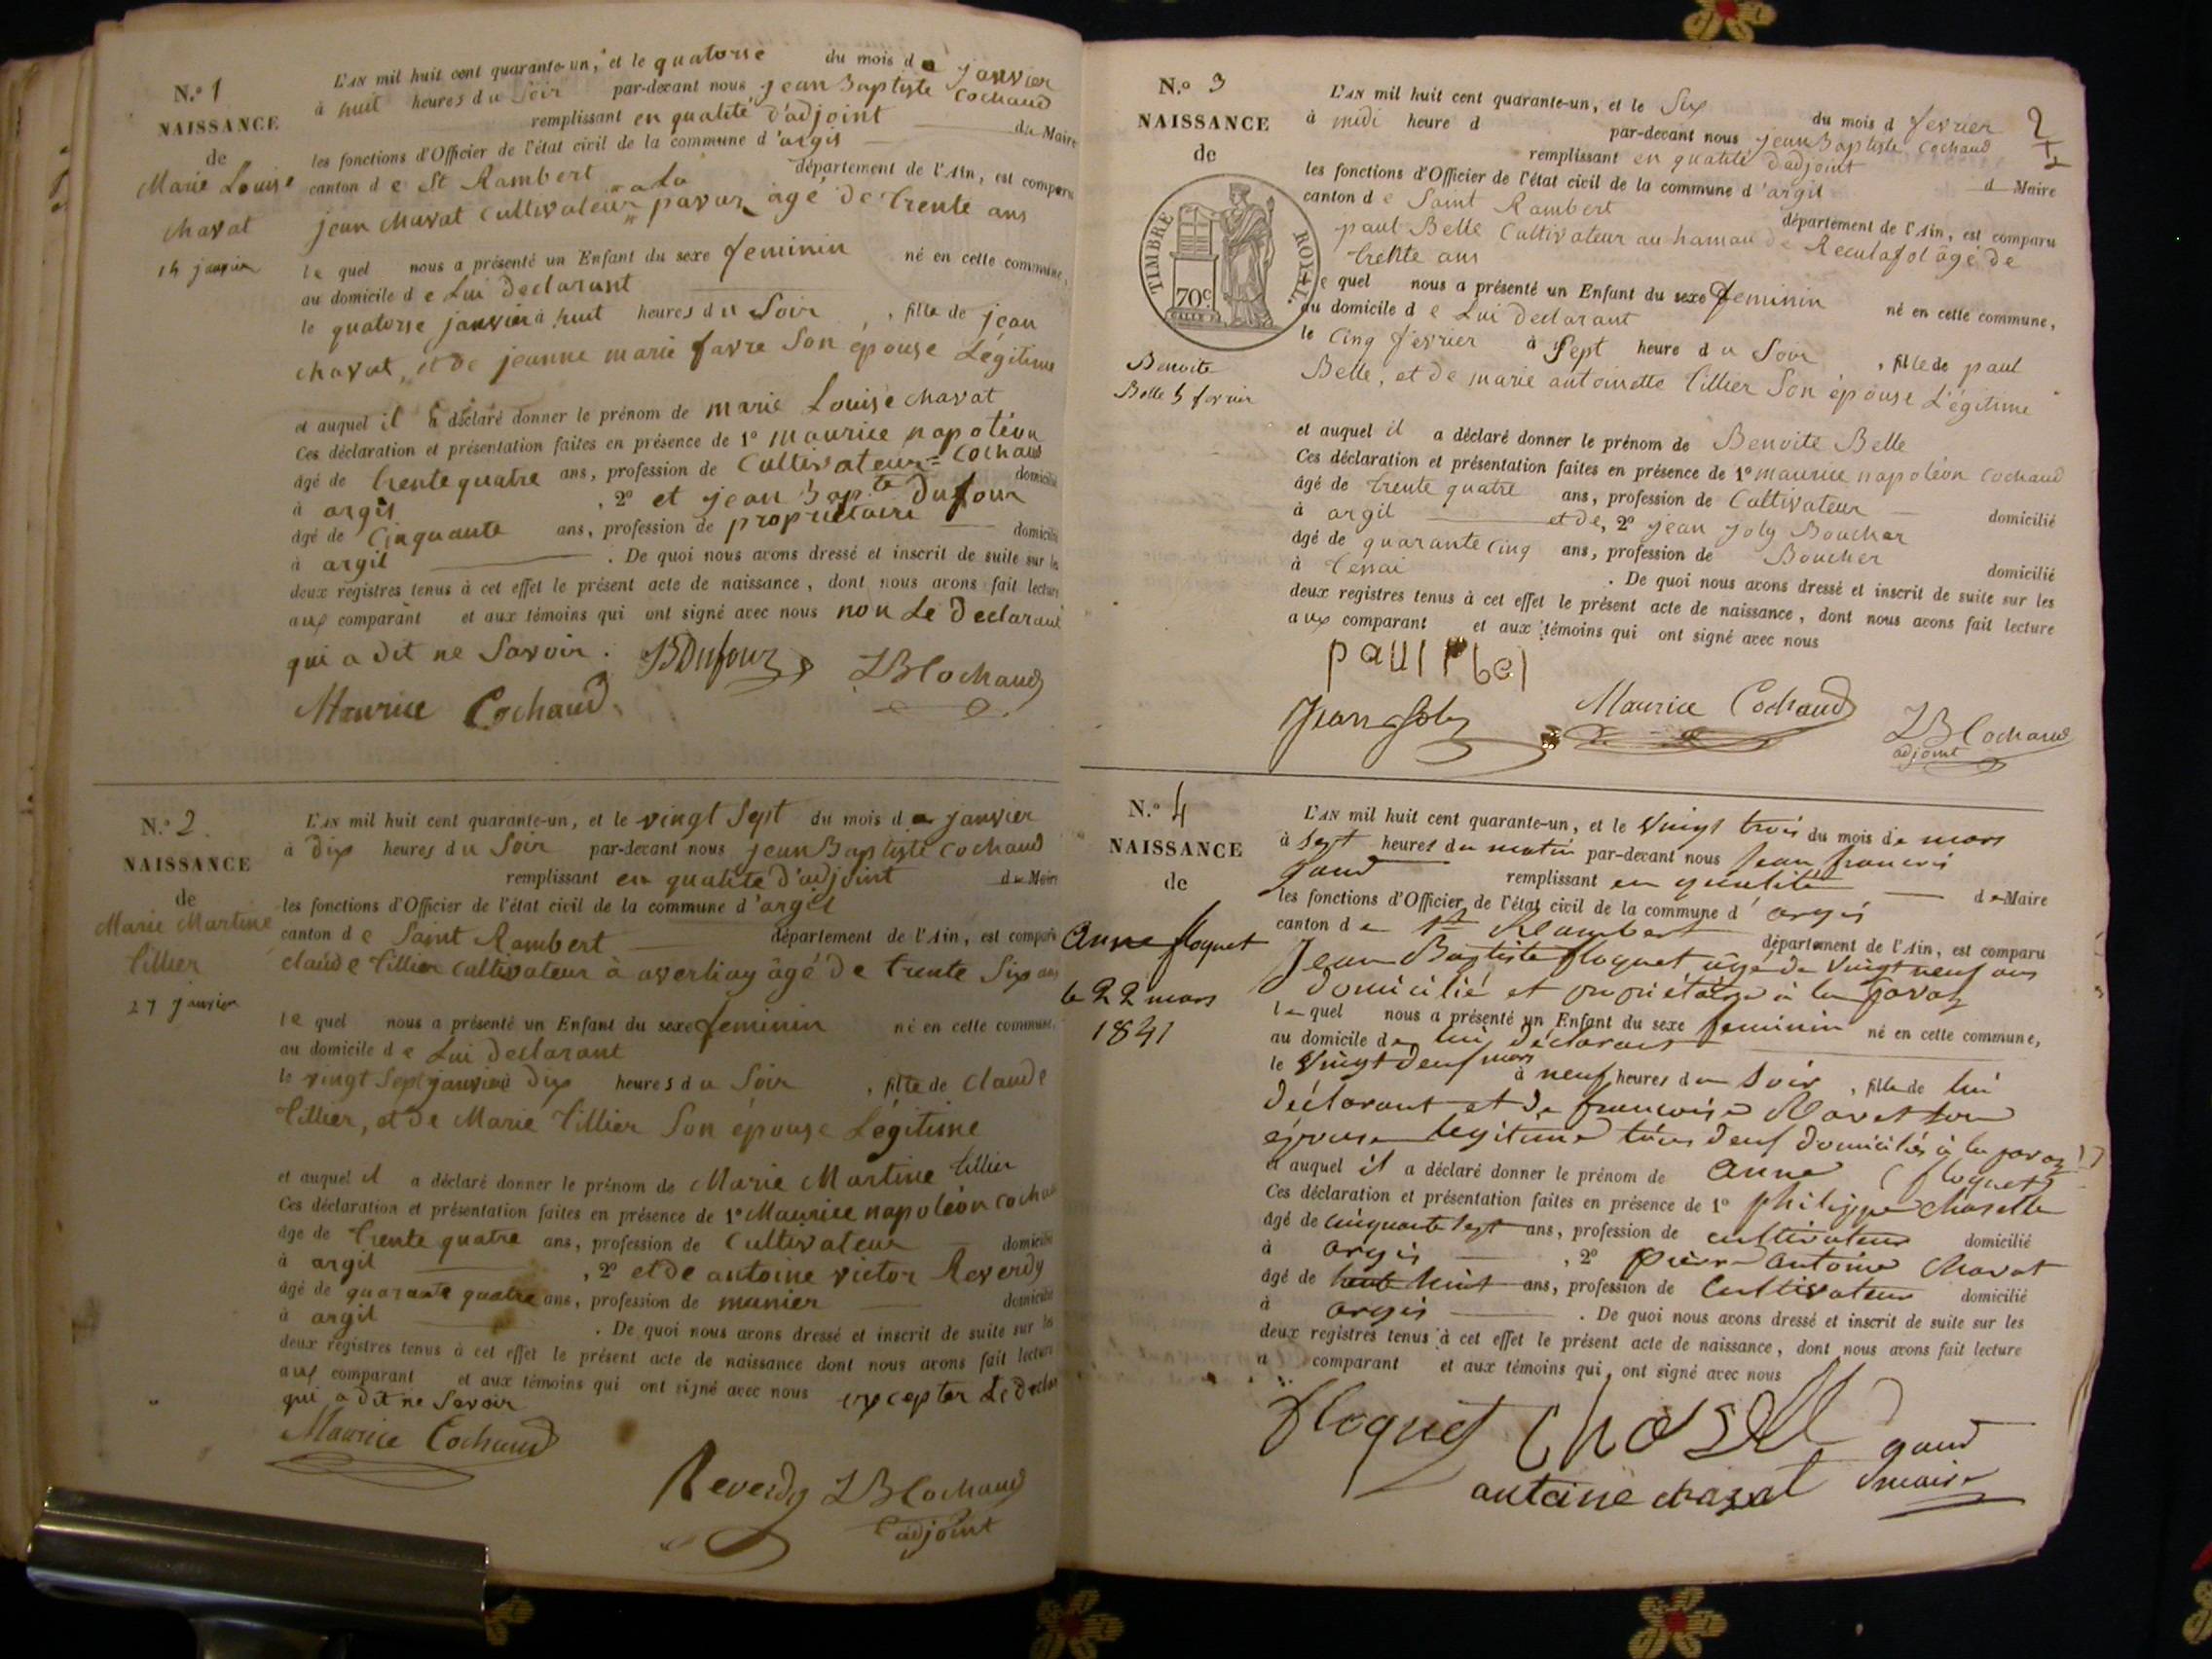 N.o 1
NAISSANCE
de
Marie Louise
Chavat
14 janvier
L'AN mil huit cent quarante-un, et le quatorse du mois de janvier
à huit heures du Soir par-devant nous jean Baptiste Cochaud
remplissant en qualité d'adjoint du Maire
les fonctions d'Officier de l'état civil de la commune d'argis
canton de St Rambert département de l'Ain, est comparu
jean Chavat Cultivateur a La pavaz âgé de trente ans
le quel nous a présenté un Enfant du sexe feminin né en cette commune,
au domicile de Lui déclarant
le quatorse janvier à huit heures du Soir, fille de jean
Chavat, et de jeanne marie favre Son épouse Légitime
et auquel il a déclaré donner le prénom de marie Louise Chavat
Ces déclaration et présentation faites en présence de 1o maurice napoléon
âgé de trente quatre ans, profession de Cultivateur = Cochaud domicilié
à argis, 2o et jean Bapte Dufour
âgé de Cinquante ans, profession de propriétaire domicilié
à argil. De quoi nous avons dressé et inscrit de suite sur les
deux registres tenus à cet effet le présent acte de naissance, dont nous avons fait lecture
aux comparant et aux témoins qui ont signé avec nous non Le Declarant
qui a dit ne Savoir. JBDufour JBCochaud
Maurice Cochaud
N.o 2.
NAISSANCE
de
Marie Martine
tillier
27 janvier
L'AN mil huit cent quarante-un, et le vingt Sept du mois de janvier
à dix heures du Soir par-devant nous jean Baptiste Cochaud
remplissant en qualité d'adjoint du Maire
les fonctions d'Officier de l'état civil de la commune d'argil
canton de Saint Rambert département de l'Ain, est comparu
claude tillier cultivateur à averliay âgé de trente Six ans
le quel nous a présenté un Enfant du sexe feminin né en cette commune,
au domicile de Lui déclarant
le vingt Sept janvier à dix heures du Soir, fille de claude
tillier, et de Marie tillier Son épouse Légitime
et auquel il a déclaré donner le prénom de Marie Martine tillier
Ces déclaration et présentation faites en présence de 1o Maurice napoléon Cochaud
âgé de trente quatre ans, profession de Cultivateur domicilié
à argil, 2o et de antoine victor Reverdy
âgé de quarante quatre ans, profession de manier domicilié
à argil. De quoi nous avons dressé et inscrit de suite sur les
deux registres tenus à cet effet le présent acte de naissance dont nous avons fait lecture
aux comparant et aux témoins qui ont signé avec nous excepter Le declar
qui a dit ne Savoir
Maurice Cochaud
Reverdy JBCochaud
adjoint
N.o 3
NAISSANCE
de
TIMBRE ROYAL.
70c
Benoite
Belle 5 fevrier
L'AN mil huit cent quarante-un, et le Six du mois d fevrier
à midi heure d par-devant nous jean Baptiste Cochaud
remplissant en qualité d'adjoint d Maire
les fonctions d'Officier de l'état civil de la commune d'argil
canton de Saint Rambert département de l'Ain, est comparu
paul Belle Cultivateur au hamau de Reculafol âgé de
trente ans
le quel nous a présenté un Enfant du sexe feminin né en cette commune,
au domicile de Lui declarant
le Cinq fevrier à Sept heure du Soir, fille de paul
Belle, et de marie antoinette tillier Son épouse Légitime
et auquel il a déclaré donner le prénom de Benoite Belle
Ces déclaration et présentation faites en présence de 1o maurice napoléon Cochaud
âgé de trente quatre ans, profession de Cultivateur domicilié
à argil et de, 2o jean joly Boucher
âgé de quarante Cinq ans, profession de Boucher domicilié
à tenai. De quoi nous avons dressé et inscrit de suite sur les
deux registres tenus à cet effet le présent acte de naissance, dont nous avons fait lecture
aux comparant et aux témoins qui ont signé avec nous
paul bel
Jean Joly Maurice Cochaud JBCochaud
adjoint
N.o 4
NAISSANCE
de
Anne floquet
le 22 mars
1841
L'AN mil huit cent quarante-un, et le vingt trois du mois de mars
à Sept heures du matin par-devant nous jean francois
gaud remplissant en qualité de Maire
les fonctions d'Officier de l'état civil de la commune d'argis
canton de St Rambert département de l'Ain, est comparu
Jean Baptiste floquet âgé de vingt neuf ans
domicilié et propriétaire à la pavaz
le quel nous a présenté un Enfant du sexe feminin né en cette commune,
au domicile de lui déclarant
le vingt deux mars à neuf heures du Soir, fille de lui
déclarant et de francoise Ravet son
épouse legitime tous deux domiciliés à la pavaz
et auquel il a déclaré donner le prénom de Anne (floquet)
Ces déclaration et présentation faites en présence de 1o philippe Choselle
âgé de cinquante sept ans, profession de cultivateur domicilié
à argis, 2o pierre Antoine Chavat
âgé de trente huit ans, profession de Cultivateur domicilié
à argis. De quoi nous avons dressé et inscrit de suite sur les
deux registres tenus à cet effet le présent acte de naissance, dont nous avons fait lecture
a comparant et aux témoins qui ont signé avec nous
floquet Chosell gaud
antoine chavat maire